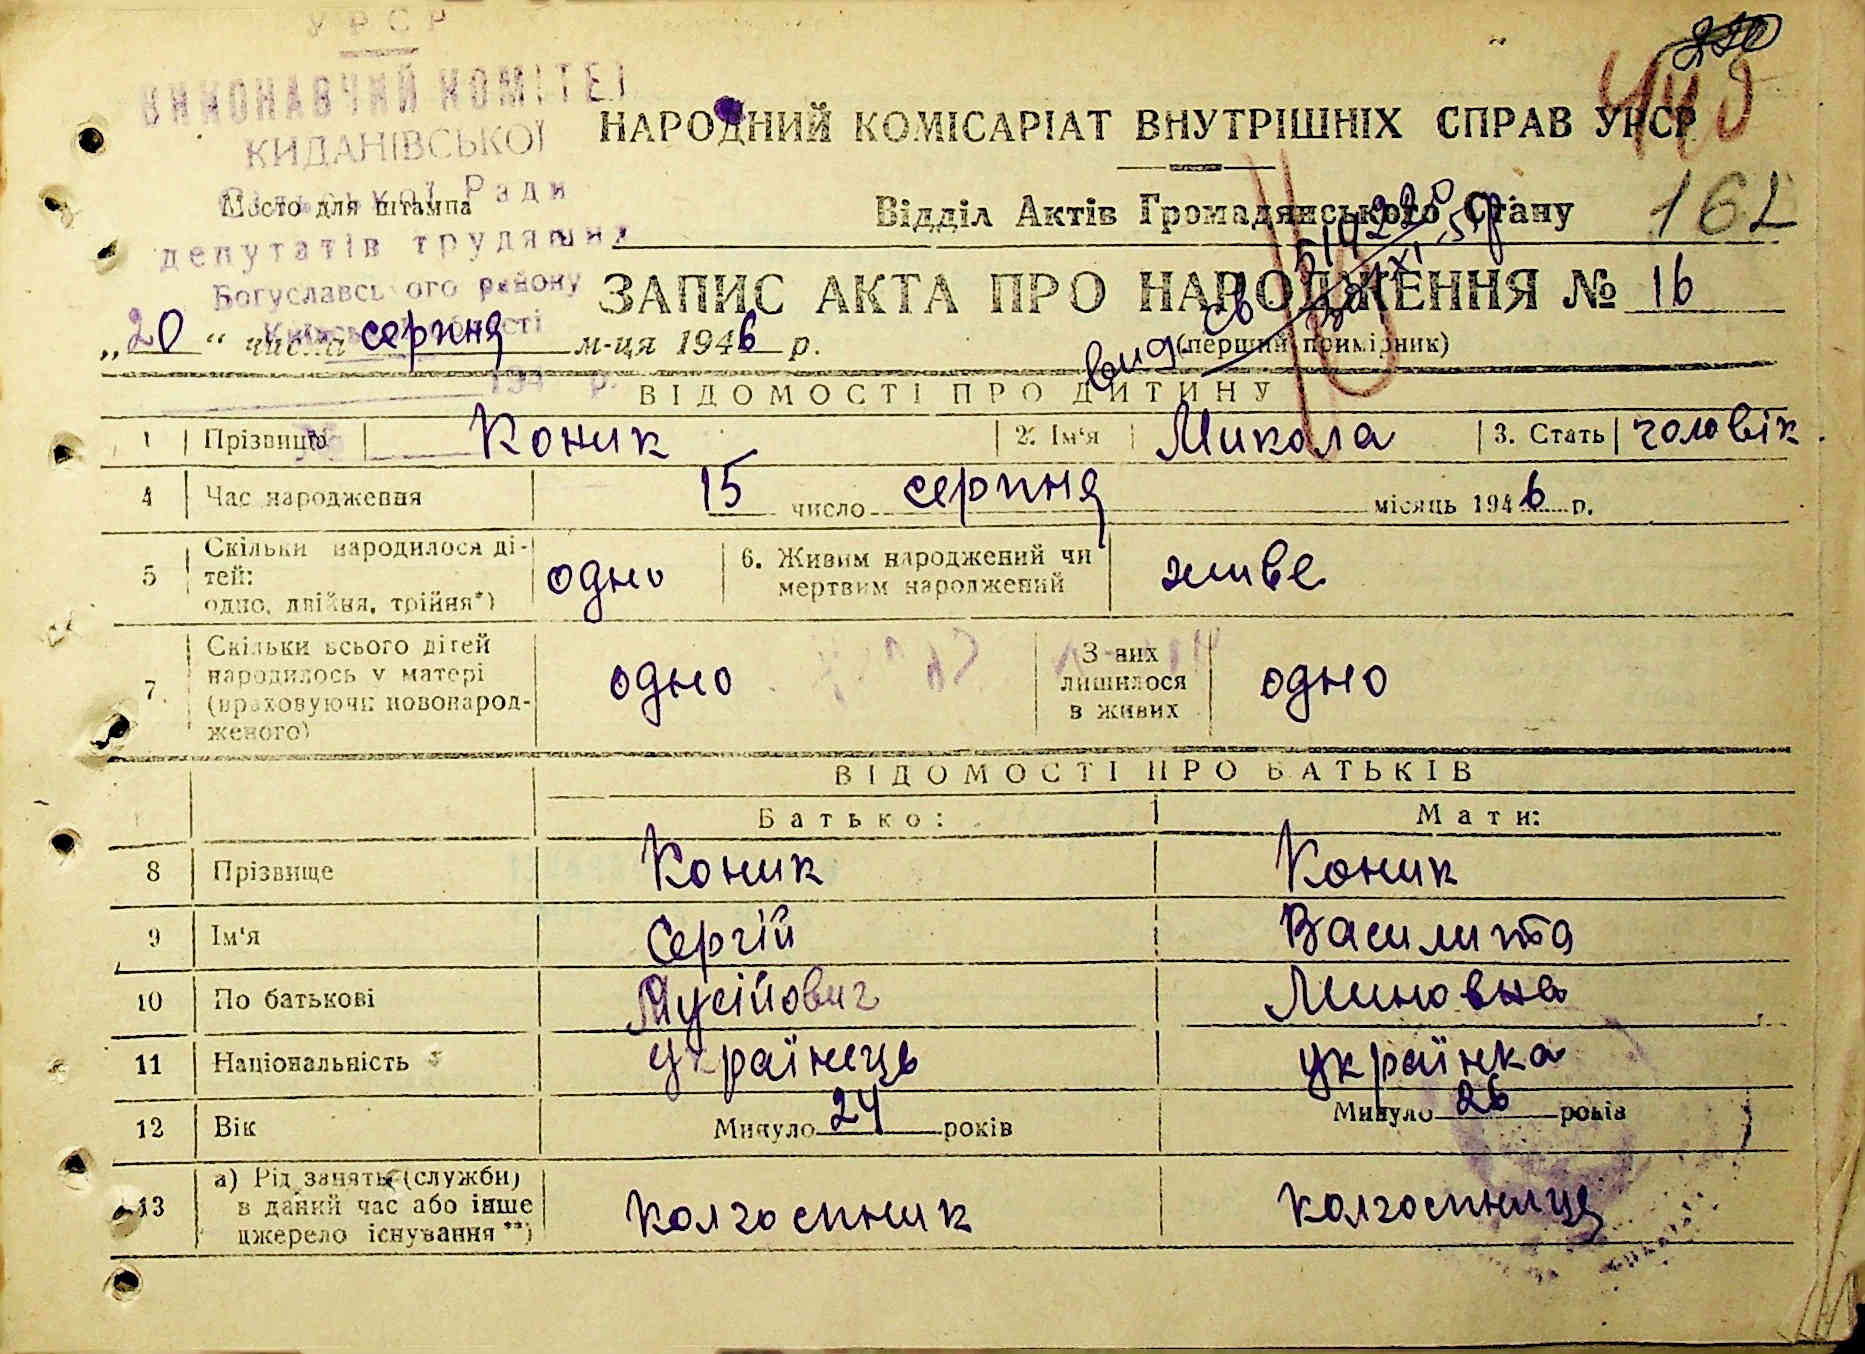 УРСР
ВИКОНАВЧИЙ КОМІТЕТ
КИДАНІВСЬКОЇ
Сільської Ради
депутатів трудящих
Богуславського району
Київської області
194 р.
Місто для штампа
449
162
НАРОДНИЙ КОМІСАРІАТ ВНУТРІШНІХ СПРАВ УРСР
Відділ Актів Громадянського Стану
ЗАПИС АКТА ПРО НАРОДЖЕННЯ № 16
„20“ числа серпня м-ця 1946 р.
(перший примірник)
вид. св
ВІДОМОСТІ ПРО ДИТИНУ
1 Прізвище Коник 2. Ім'я Микола 3. Стать чоловік.
4 Час народження 15 число серпня місяць 1946 р.
5 Скільки народилося ді-
тей:
одно, двійня, трійня*) одно 6. Живим народжений чи
мертвим народжений живе
7. Скільки всього дітей
народилось у матері
(враховуючи новонарод-
женого) одно З них
лишилося
в живих одно
ВІДОМОСТІ ПРО БАТЬКІВ
Батько: Мати:
8 Прізвище Коник Коник
9 Ім'я Сергій Василина
10 По батькові Мусійович Миновна
11 Національність українець українка
12 Вік Минуло 24 років Минуло 26 років
13 а) Рід занять (служби)
в даний час або інше
джерело існування**) колгоспник колгоспниця